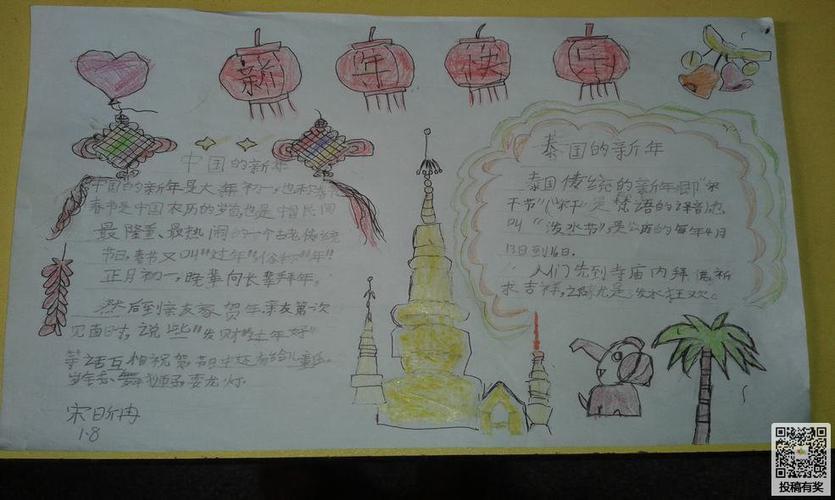 新年快乐
中国的新年
中国的新年是大年初一,也称春节
春节是中国农历的岁首,也是中国民间
最隆重、最热闹的一个古老传统
节日。春节又叫“过年”俗称“年”
正月初一,晚辈向长辈拜年。
然后到亲友家贺年亲友第一次
见面时,说些“发财”“过年好”
等话互相祝贺,节日中还有给儿童压
岁钱、舞狮子耍龙灯.
宋昕冉
1.8
泰国的新年
泰国传统的新年即“宋
干节”(“宋干”是梵语的译音)也
叫“泼水节”是公历的每年4月
13日到16日.
人们先到寺庙内拜佛祈
求吉祥,之后尤是泼水狂欢。
投稿有奖